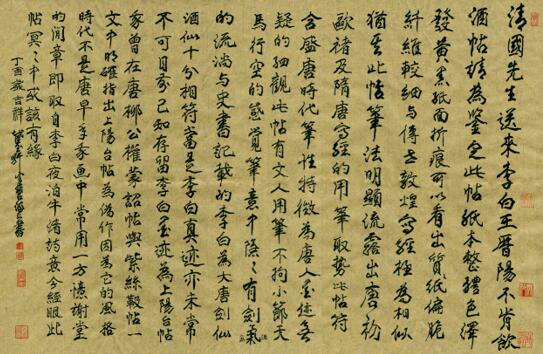 清國先生送來李白王曆陽不肯飲
酒帖請為鑒定此帖紙本整體色澤
發黃紙面折痕可以看出質紙偏脆
纤維較細与傳世敦煌寫經極為相似
猶是此帖筆法明顯流露出唐初
歐褚及隋唐寫經的用筆取勢此帖符
合盛唐時代筆性特徵為唐人墨迹無
疑的細觀此帖有文人用筆不拘小節天
馬行空的感覺筆意中隱〻有劍氣
的流淌与史書記載的李白為大唐劍仙
酒仙十分相符當是李白真迹亦未常
不可目前已知存留李白墨迹為上陽台帖
家曾在唐柳公權蒙詔帖與紫絲靸帖一
文中明確指出上陽台帖為偽作因為它的風格
時代不是唐早年家中常用一方憶謝堂
的閒章即取自李白夜泊牛渚意今經眼此
帖冥〻中或該有緣
丁酉歲吉祥